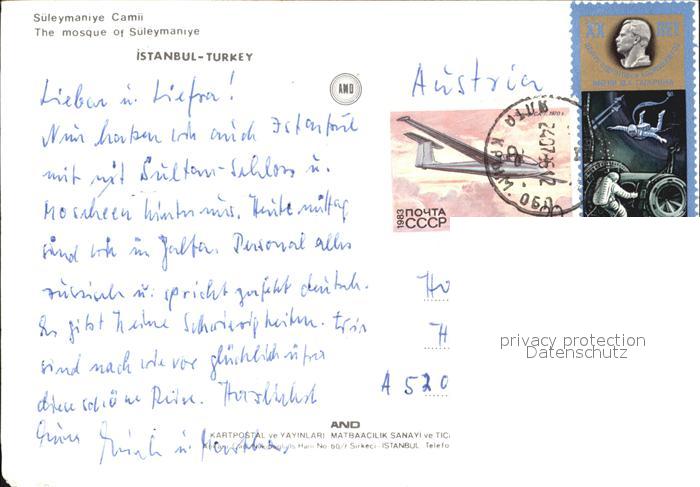 Süleymaniye Camii
The mosque of Süleymaniye
İSTANBUL-TURKEY
AND
Austria
Lieber u.
Nun haben wir auch Istanbul
mit mit Sultan-Schloss u.
Moscheen hinter uns. Heute mittag
sind wir in Jalta. Personal alles
russisch u. spricht perfekt deutsch.
Es gibt keine Schwierigkeiten. Wir
sind nach wie vor glücklich über
diese schöne Reise. Herzlichst
u.
1983 ПОЧТА
СССР
ЯЛТА
Ho
H
A 520
privacy protection
Datenschutz
AND
KARTPOSTAL ve YAYINLARI MATBAACILIK SANAYi ve TİC
Han No 60/7 Sirkeci-ISTANBUL Telefo